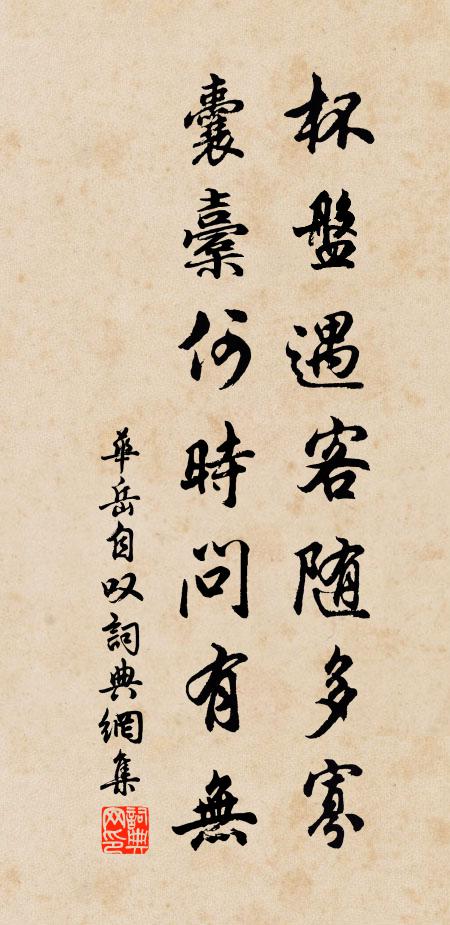 杯盤遇客随多寡
囊橐何時問有無
華岳自叹詞典網集
詞典网印